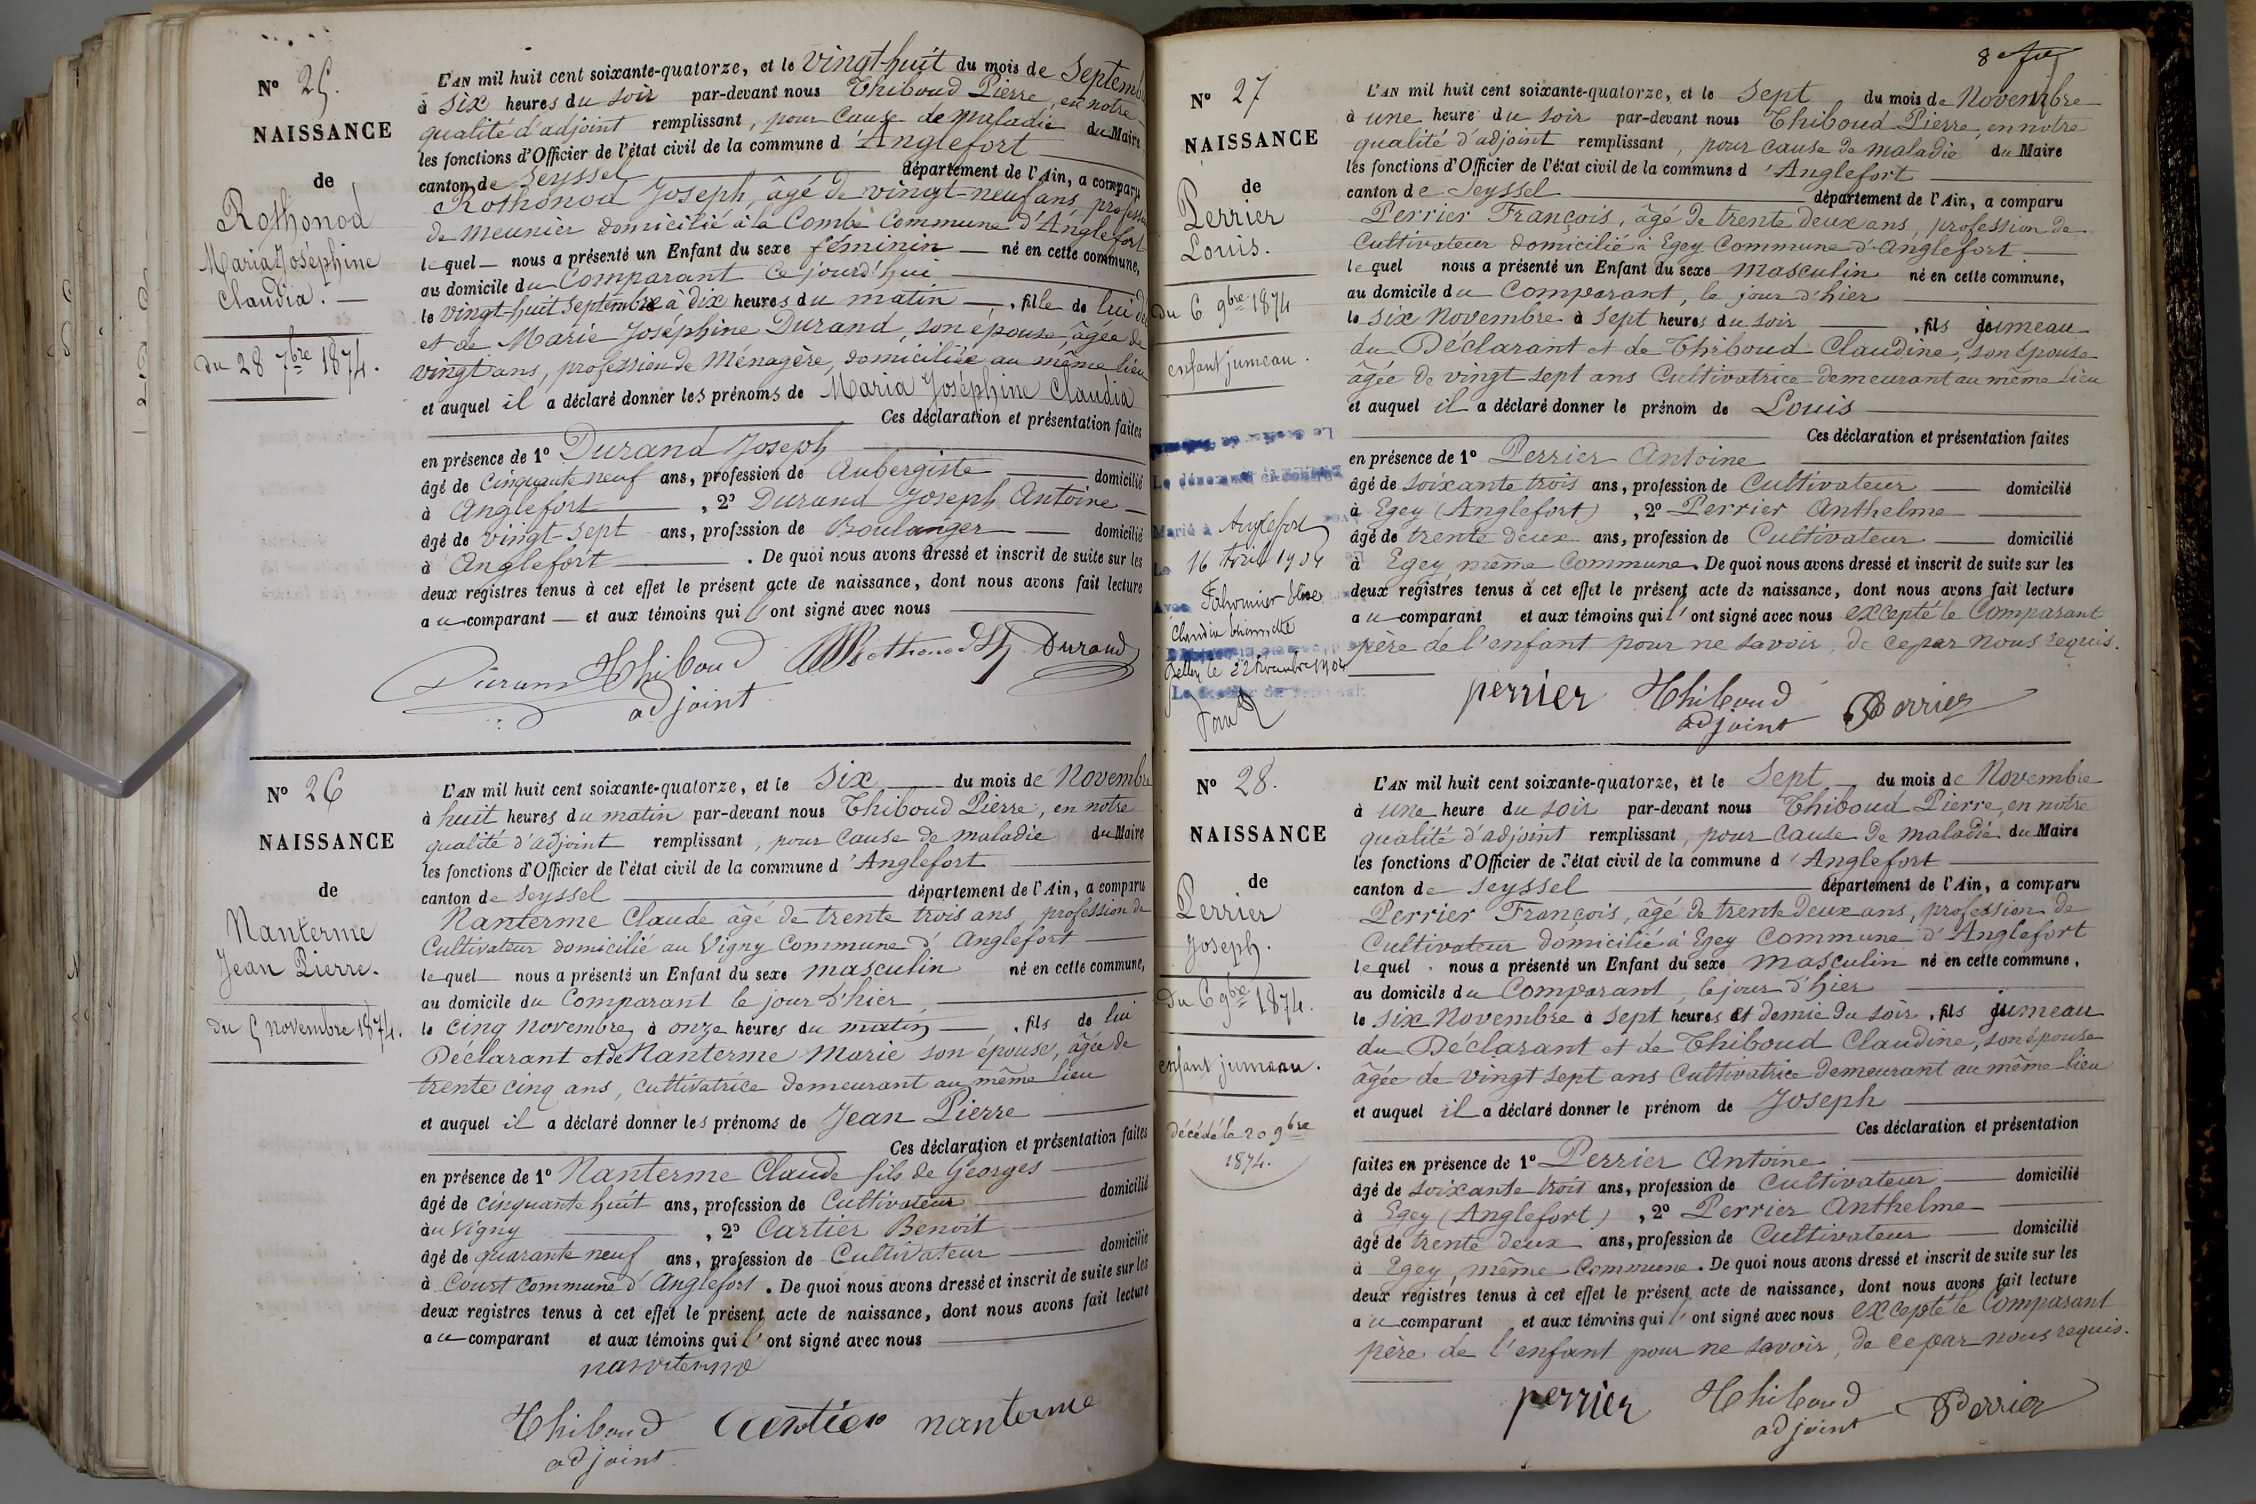 Nº 25.
NAISSANCE
de
Rothonod
Maria Joséphine
Claudia. —
du 28 7bre 1874.
L'AN mil huit cent soixante-quatorze, et le vingt-huit du mois de Septemb
à six heures du soir par-devant nous Thiboud Pierre, en notre
qualité d'adjoint remplissant, pour cause de maladie du Maire
les fonctions d'Officier de l'état civil de la commune d'Anglefort
canton de Seyssel département de l'Ain, a comparu
Rothonod Joseph, âgé de vingt-neuf ans, profession
de meunier domicilié à la Combe Commune d'Anglefort
lequel — nous a présenté un Enfant du sexe féminin — né en cette commune,
au domicile du Comparant ce jourd'hui
le vingt-huit Septembre à dix heures du matin —, fille de lui dé
et de Marie Joséphine Durand, son épouse, âgée de
vingt ans, profession de Ménagère, domiciliée au même lieu
et auquel il a déclaré donner les prénoms de Maria Joséphine Claudia
Ces déclaration et présentation faites
en présence de 1º Durand Joseph
âgé de cinquante neuf ans, profession de Aubergiste — domicilié
à Anglefort , 2º Durand Joseph Antoine —
âgé de vingt-sept ans, profession de Boulanger — domicilié
à Anglefort . De quoi nous avons dressé et inscrit de suite sur les
deux registres tenus à cet effet le présent acte de naissance, dont nous avons fait lecture
au comparant — et aux témoins qui l'ont signé avec nous
Durand Thiboud Rothonod Jh Durand
adjoint
Nº 26
NAISSANCE
de
Nanterme
Jean Pierre.
du 5 novembre 1874.
L'AN mil huit cent soixante-quatorze, et le six du mois de Novembre
à huit heures du matin par-devant nous Thiboud Pierre, en notre
qualité d'adjoint remplissant, pour cause de maladie du Maire
les fonctions d'Officier de l'état civil de la commune d'Anglefort
canton de Seyssel département de l'Ain, a comparu
Nanterme Claude âgé de trente trois ans, profession de
Cultivateur domicilié au Vigny Commune d'Anglefort
lequel — nous a présenté un Enfant du sexe masculin né en cette commune,
au domicile du Comparant le jour d'hier
le cinq novembre, à onze heures du matin —, fils de lui
Déclarant et de Nanterme Marie son épouse, âgée de
trente cinq ans, cultivatrice demeurant au même lieu
et auquel il a déclaré donner les prénoms de Jean Pierre
Ces déclaration et présentation faites
en présence de 1º Nanterme Claude fils de Georges
âgé de cinquante huit ans, profession de Cultivateur domicilié
au Vigny , 2º Cartier Benoit
âgé de quarante neuf ans, profession de Cultivateur domicilié
à Court Commune d'Anglefort. De quoi nous avons dressé et inscrit de suite sur les
deux registres tenus à cet effet le présent acte de naissance, dont nous avons fait lecture
au comparant et aux témoins qui l'ont signé avec nous
nanterme
Thiboud Cartier nanterme
adjoint
Nº 27
NAISSANCE
de
Perrier
Louis.
du 6 9bre 1874
enfant jumeau.
Marié à Anglefort
Le 16 Avril 1904
Avec
Claudia
Belley le 22 Novembre 1904
L'AN mil huit cent soixante-quatorze, et le Sept du mois de Novembre
à une heure du soir par-devant nous Thiboud Pierre, en notre
qualité d'adjoint remplissant, pour cause de maladie du Maire
les fonctions d'Officier de l'état civil de la commune d'Anglefort
canton de Seyssel département de l'Ain, a comparu
Perrier François, âgé de trente deux ans, profession de
Cultivateur domicilié à Egey Commune d'Anglefort
lequel nous a présenté un Enfant du sexe masculin né en cette commune,
au domicile du Comparant, le jour d'hier
le six Novembre à sept heures du soir , fils jumeau
du Déclarant et de Thiboud Claudine, son épouse
âgée de vingt sept ans Cultivatrice demeurant au même lieu
et auquel il a déclaré donner le prénom de Louis
Ces déclaration et présentation faites
en présence de 1º Perrier Antoine
âgé de soixante trois ans, profession de Cultivateur — domicilié
à Egey (Anglefort) , 2º Perrier Anthelme
âgé de trente deux ans, profession de Cultivateur — domicilié
à Egey même Commune. De quoi nous avons dressé et inscrit de suite sur les
deux registres tenus à cet effet le présent acte de naissance, dont nous avons fait lecture
au comparant et aux témoins qui l'ont signé avec nous excepté le Comparant
père de l'enfant pour ne savoir, de ce par nous requis.
perrier Thiboud Perrier
adjoint
Nº 28.
NAISSANCE
de
Perrier
Joseph.
Du 6 9bre 1874.
enfant jumeau.
décédé le 20 9bre
1874.
L'AN mil huit cent soixante-quatorze, et le Sept du mois de Novembre
à une heure du soir par-devant nous Thiboud Pierre, en notre
qualité d'adjoint remplissant, pour cause de maladie du Maire
les fonctions d'Officier de l'état civil de la commune d'Anglefort
canton de Seyssel département de l'Ain, a comparu
Perrier François, âgé de trente deux ans, profession de
Cultivateur domicilié à Egey Commune d'Anglefort
lequel nous a présenté un Enfant du sexe masculin né en cette commune,
au domicile du Comparant, le jour d'hier
le six Novembre à sept heures et demie du soir, fils jumeau
du Déclarant et de Thiboud Claudine, son épouse
âgée de vingt sept ans Cultivatrice demeurant au même lieu
et auquel il a déclaré donner le prénom de Joseph
Ces déclaration et présentation
faites en présence de 1º Perrier Antoine
âgé de soixante trois ans, profession de Cultivateur — domicilié
à Egey (Anglefort) , 2º Perrier Anthelme
âgé de trente deux ans, profession de Cultivateur — domicilié
à Egey, même Commune. De quoi nous avons dressé et inscrit de suite sur les
deux registres tenus à cet effet le présent acte de naissance, dont nous avons fait lecture
au comparant et aux témoins qui l'ont signé avec nous excepté le Comparant
père de l'enfant pour ne savoir, de ce par nous requis.
perrier Thiboud Perrier
adjoint